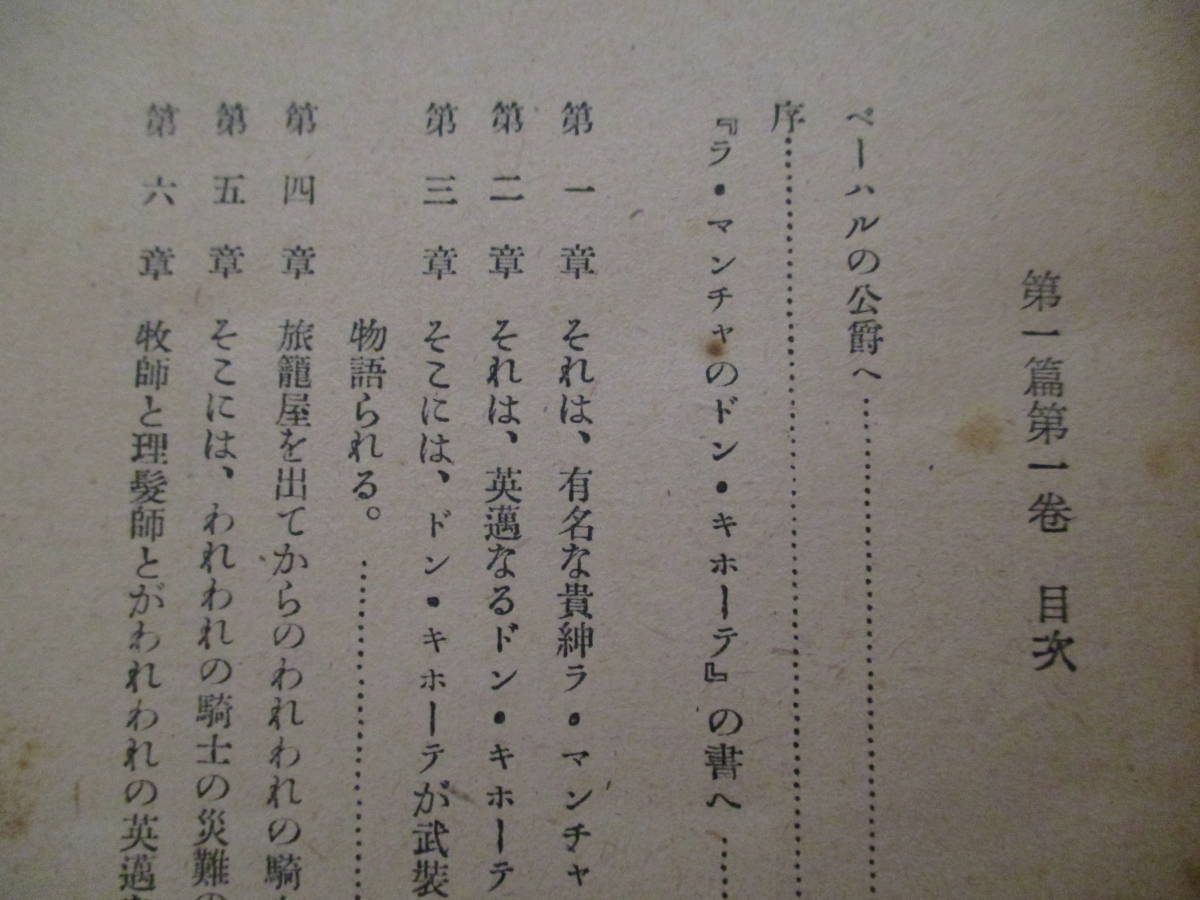 第一篇第一卷 目次
ベーハルの公爵へ……………………
序……………………………………
『ラ・マンチャのドン・キホーテ』の書へ……
第一章 それは、有名な貴紳ラ・マンチャ
第二章 それは、英邁なるドン・キホーテ
第三章 そこには、ドン・キホーテが武裝
物語られる。……………………
第四章 旅籠屋を出てからのわれわれの騎
第五章 そこには、われわれの騎士の災難の
第六章 牧師と理髮師とがわれわれの英邁